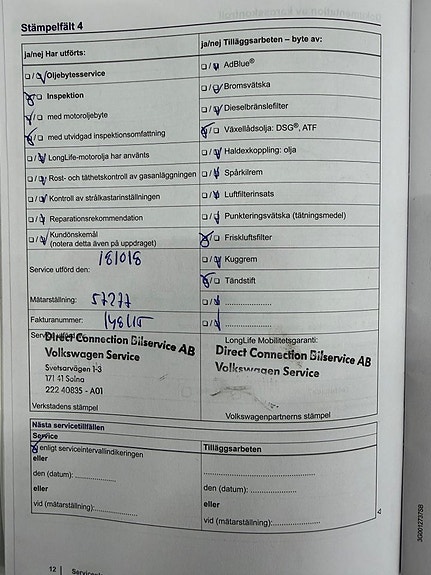 Stämpelfält 4
ja/nej Har utförts:
ja/nej Tilläggsarbeten – byte av:
Oljebytesservice
AdBlue®
Inspektion
Bromsvätska
med motoroljebyte
Dieselbränslefilter
med utvidgad inspektionsomfattning
Växellådsolja: DSG®, ATF
LongLife-motorolja har använts
Haldexkoppling: olja
Rost- och täthetskontroll av gasanläggningen
Spårkilrem
Kontroll av strålkastarinställningen
Luftfilterinsats
Reparationsrekommendation
Punkteringsvätska (tätningsmedel)
Kundönskemål
(notera detta även på uppdraget)
Friskluftsfilter
181018
Service utförd den:
Kuggrem
Tändstift
Mätarställning: 57277
Fakturanummer:
Direct Connection Bilservice AB
Volkswagen Service
Svetsarvägen 1-3
171 41 Solna
222 40835 - A01
Verkstadens stämpel
LongLife Mobilitetsgaranti:
Direct Connection Bilservice AB
Volkswagen Service
Volkswagenpartnerns stämpel
Nästa servicetillfällen
Service
Tilläggsarbeten
enligt serviceintervallindikeringen
eller
den (datum):
eller
vid (mätarställning):
den (datum):
eller
vid (mätarställning):
4
12
3G0012737SB